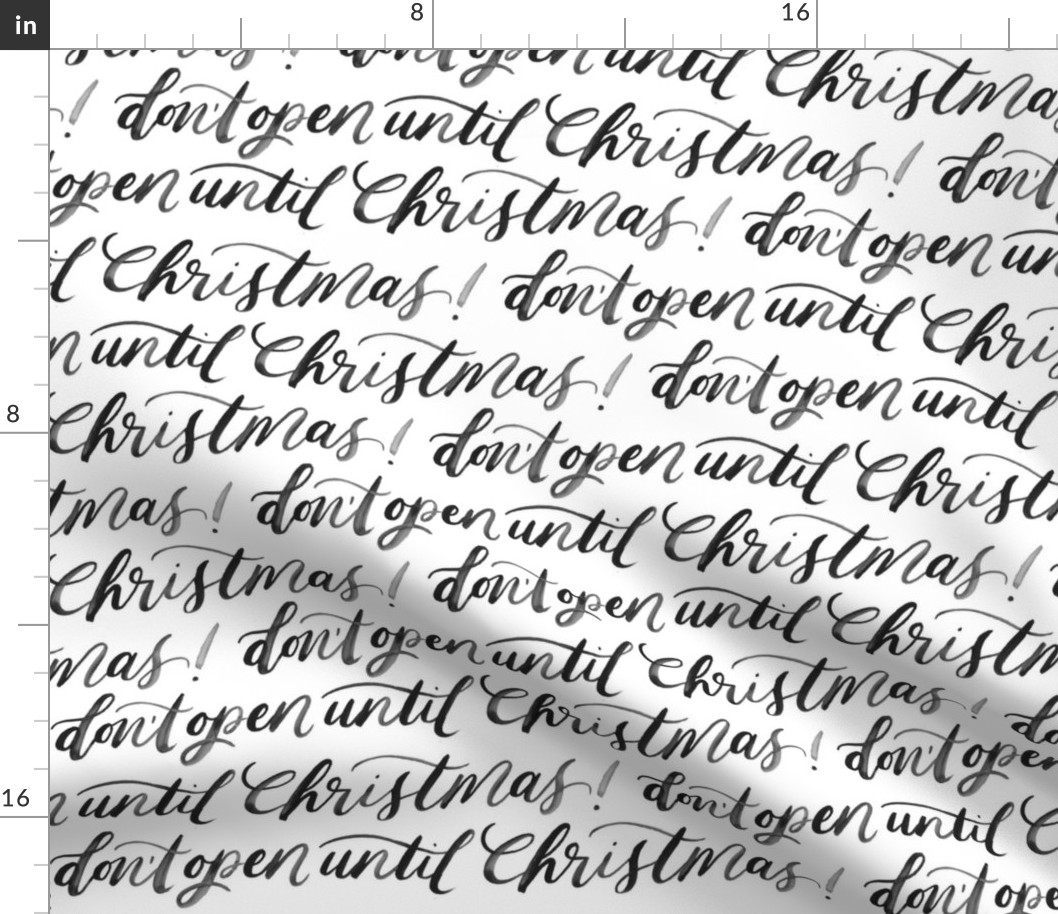 in 8 16
open until Christma
! don't open until Christmas! don't
open until Christmas! don't open un
il Christmas! don't open until Chri
n until Christmas! don't open until
8
Christmas! don't open until Christ
tmas! don't open until Christmas!
Christmas! don't open until Christm
mas! don't open until Christmas! do
don't open until Christmas! don't open
16
n until Christmas! don't open until C
don't open until Christmas! don't ope